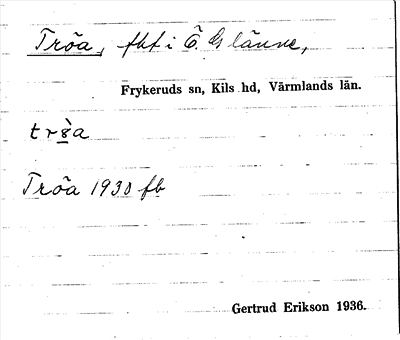 Tröa, fbf i Ö. Glänne,
Frykeruds sn, Kils hd, Värmlands län.
Tröa 1930 fb
Gertrud Erikson 1936.